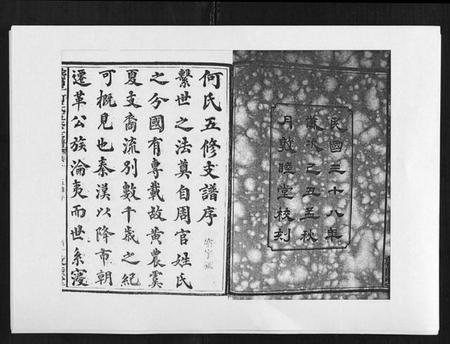 民國三十八年
歲次己丑孟秋
月敦睦堂校刊
何氏五修支譜序
繫世之法奠自周官姓氏
之分國有專載故黃農虞
夏支裔流別數千歲之紀
可概見也秦漢以降市朝
遷革公族淪夷而世系寖